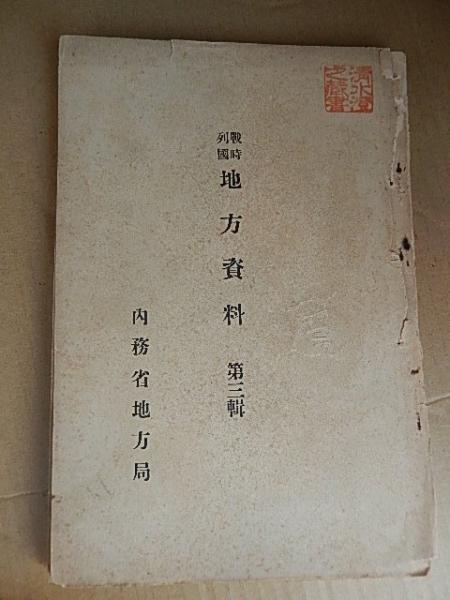 戰時
列國
地方資料 第三輯
內務省地方局
清水澄
之藏書